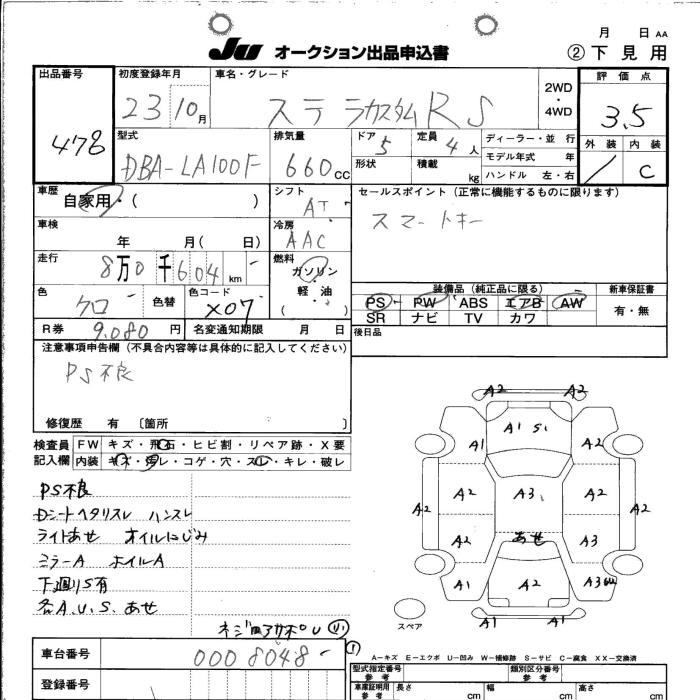 JU オークション出品申込書
月 日 AA
② 下見用
出品番号 478
初度登録年月 23 10月
車名・グレード ステラカスタムRS
2WD・4WD
評価点 3.5
外装 内装 C
型式 DBA-LA100F
排気量 660cc
ドア 5
形状
定員 4人
積載 kg
ディーラー・並 行
モデル年式 年
ハンドル 左・右
車歴 自家用・( )
シフト AT
セールスポイント(正常に機能するものに限ります)
スマートキー
車検 年 月( 日)
冷房 AAC
走行 8万0千604km
燃料 ガソリン・軽油 ( )
色 クロ 色替
色コード X07
装備品(純正品に限る)
PS PW ABS エアB AW
SR ナビ TV カワ
新車保証書 有・無
R券 9,080円
名変通知期限 月 日
後日品
注意事項申告欄(不具合内容等は具体的に記入してください)
PS不良
修復歴 有 〔箇所 〕
検査員記入欄
FW キズ・飛石・ヒビ割・リペア跡・X要
内装 キズ・汚レ・コゲ・穴・スレ・キレ・破レ
PS不良
Dシートヘタリスレ ハンスレ
ライトあせ オイルにじみ
ミラーA ホイルA
下廻りS有
各A.U.S.あせ
A2 A2
A1 S1 A1 A2
A2 A2 A3 A2 A2
A2 あせ A3
A1 A2 A3
A1 A1
スペア
A−キズ E−エクボ U−凹み W−補修跡 S−サビ C−腐食 XX−交換済
車台番号 0008048
登録番号
型式指定番号 参考
類別区分番号 参考
車庫証明用 参考
長さ cm 幅 cm 高さ cm